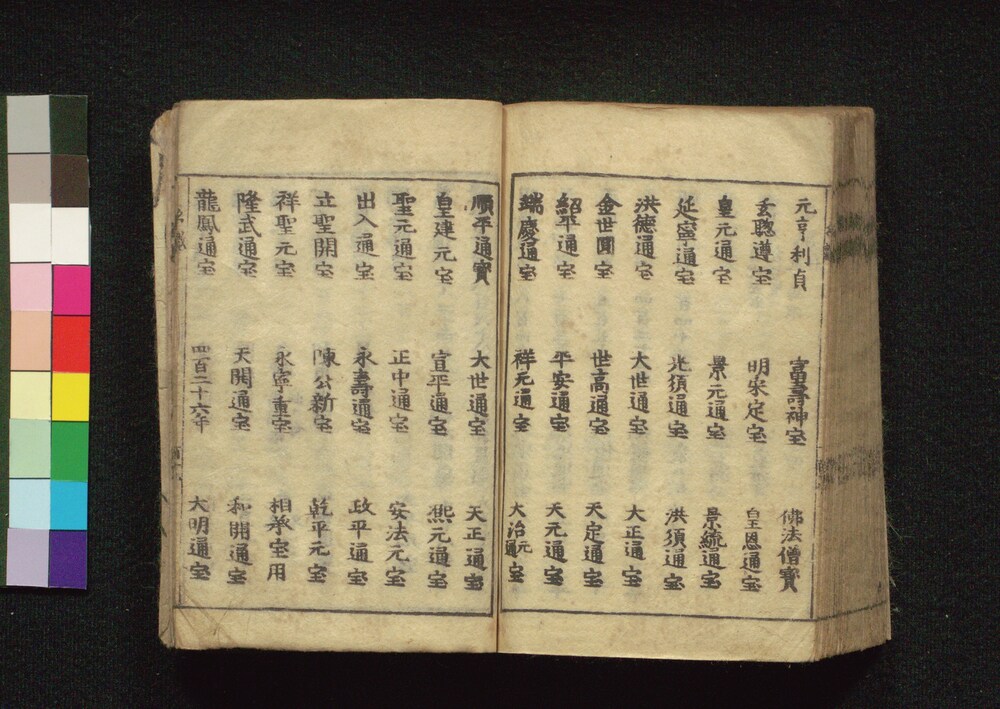 元亨利貞 富壽神宝 佛法僧寳
玄聰遵宝 明宋定宝 皇恩通宝
皇元通宝 景元通宝 景統通宝
延寧通宝 光須通宝 洪須通宝
洪德通宝 大世通宝 大正通宝
金世圓宝 世高通宝 天定通宝
紹平通宝 平安通宝 天元通宝
端慶通宝 祥元通宝 大治元通宝
順平通寳 大世通宝 天正通宝
皇建元宝 宣平通宝 熙元通宝
聖元通宝 正中通宝 安法元宝
出入通宝 永壽通宝 政平通宝
立聖開宝 陳公新宝 乾平元宝
祥聖元宝 永寧重宝 相承宝用
隆武通宝 天開通宝 和開通宝
龍鳳通宝 四百二十六年 大明通宝